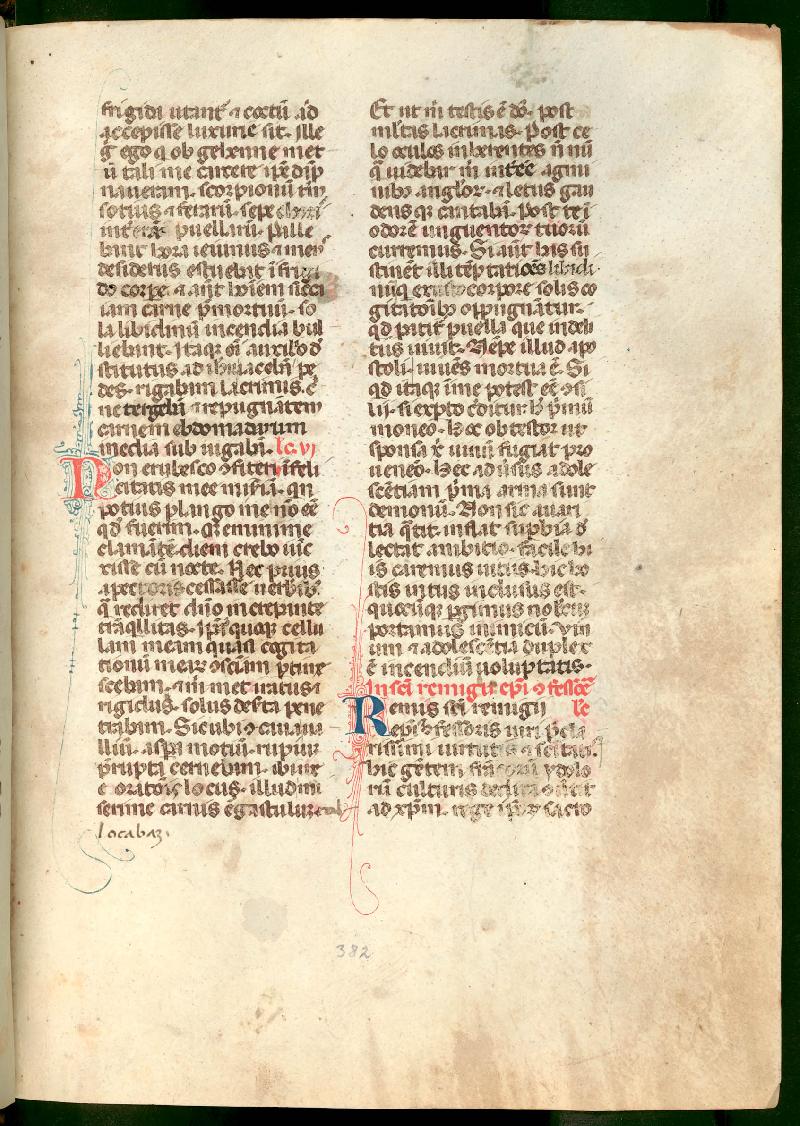 frigidi utant᷑ ⁊ coctū .id
accepisse luxurie sit. Ille
g̊ ego q̇ ob gehenne met
ū tali me carcere ip̄e dāp
naueram. scorpionū tm̄
sotius ⁊ ferarū. sepe chori
int᷑erā puellarū. Palle
bant hora ieiunius ⁊ mens
desideriis estuebat ī frigi
do corpe. ⁊ añt hoīem sūū
iam carne p̄mortuū. so
la libidinū incendia bul
liebant. Itaq̣ oī auxilio d̕
stitutus. ad ihū iaceb̄a pe
des. rigabam lacrimis. c̄
ne tergebā ⁊ repugnātem
carnem ebdomadarum
media subiugabā. lc̄. vj
Non erubesco ɔfiteri īfeli
citatis mee mis̄iā. qn̄
potius plango me nō eē
qd̕ fuerim. Qr̄ memine
clamātē. diem crebo iūc
xisse cū nocte. Nec prius
a pectoris cessasse uerb̄ib᷒
q̄ rediret dn̄o increpante
trāq̇llitas. ip̄ā quoq̣ cellu
lam meam quasi cogita
tionū mearꝝ ɔsciam p̄time
scebam. ⁊ m̄ met iratus ⁊
rigidus. solus des̄ta pene
trabam. Sicubi ɔcaua ua
lliū. asp̄a motiū. rupiū
p̄rupta cernebam. ibi me
e oratōis locus. illud mi
serime carnis ēgastulū: coll
locabaꝫ.
Et ut m̄ testis ē dō. post
ml̄tas lacrimas. Post ce
lo oculos inherentes n̄ nū
q̄ uidebar m̄ int᷑ēe agmi
nibꝫ anglorꝝ. ⁊ letus gau
densq̣ cantabā. Post te ī
odorē unguentorꝝ tuorū
curremus. Si aūt his su
stinēt illi tēptatiōes libidi
nūq̣ exusto corpore solis co
gitatōibꝫ oppugnātur.
qd̕ patit᷑ puella que in deli
tiis uiuit. Nēpe illud apo
stoli. uiuēs mortua ē. Si
qd̕ itaq̣ ī me potest eē ɔsi
lij. si exp̄to cditur. h̄ p̄mū
moneo. hoc obtestor ut
sponsa xi᷑ uinū fugiat pro
ueneo. hec adūsus adole
scētiam p̄ma arma sunt
demonū. Non sic auari
tia q̄tit. inflat sup̄bia d̕
lectat ambicio. facile hi
is caremus uitiis. hic ho
stis intus inclusus est.
quocūq̣ p̄gimus nobcū
portamus inimicū. Vin
um ⁊ adolescētia duplex
ē incendiū uoluptatis.
In sc̄i remigii ep̄i ⁊ ɔfessōē
Remus sc̄i remigii lc̄
ep̄i ⁊ ɔfessoris uiri p̄cla
rissimi uirtutis ⁊ sc̄itatis.
hic gētem frācorū ydolo
rū culturis dedita ɔuertit
ad xp̄m. rege ip̄orꝝ sacro
382